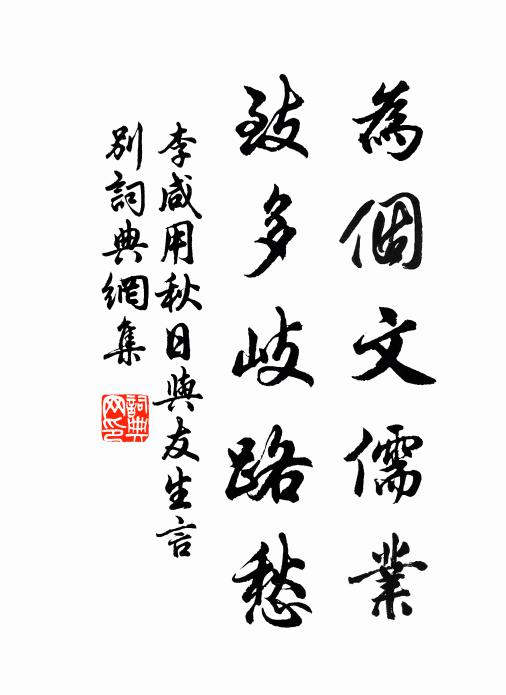 為個文儒業
致多岐路愁
李咸用秋日與友生言
別詞典網集
詞典
网印